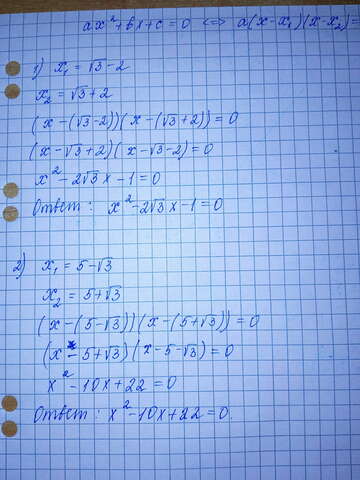 ax²+bx+c=0 <=> a(x-x₁)(x-x₂)=
1) x₁ = √3-2
x₂ = √3+2
(x-(√3-2))(x-(√3+2))=0
(x-√3+2)(x-√3-2)=0
x²-2√3x-1=0
Ответ: x²-2√3x-1=0
2) x₁ = 5-√3
x₂ = 5+√3
(x-(5-√3))(x-(5+√3))=0
(x-5+√3)(x-5-√3)=0
x²-10x+22=0
Ответ: x²-10x+22=0.